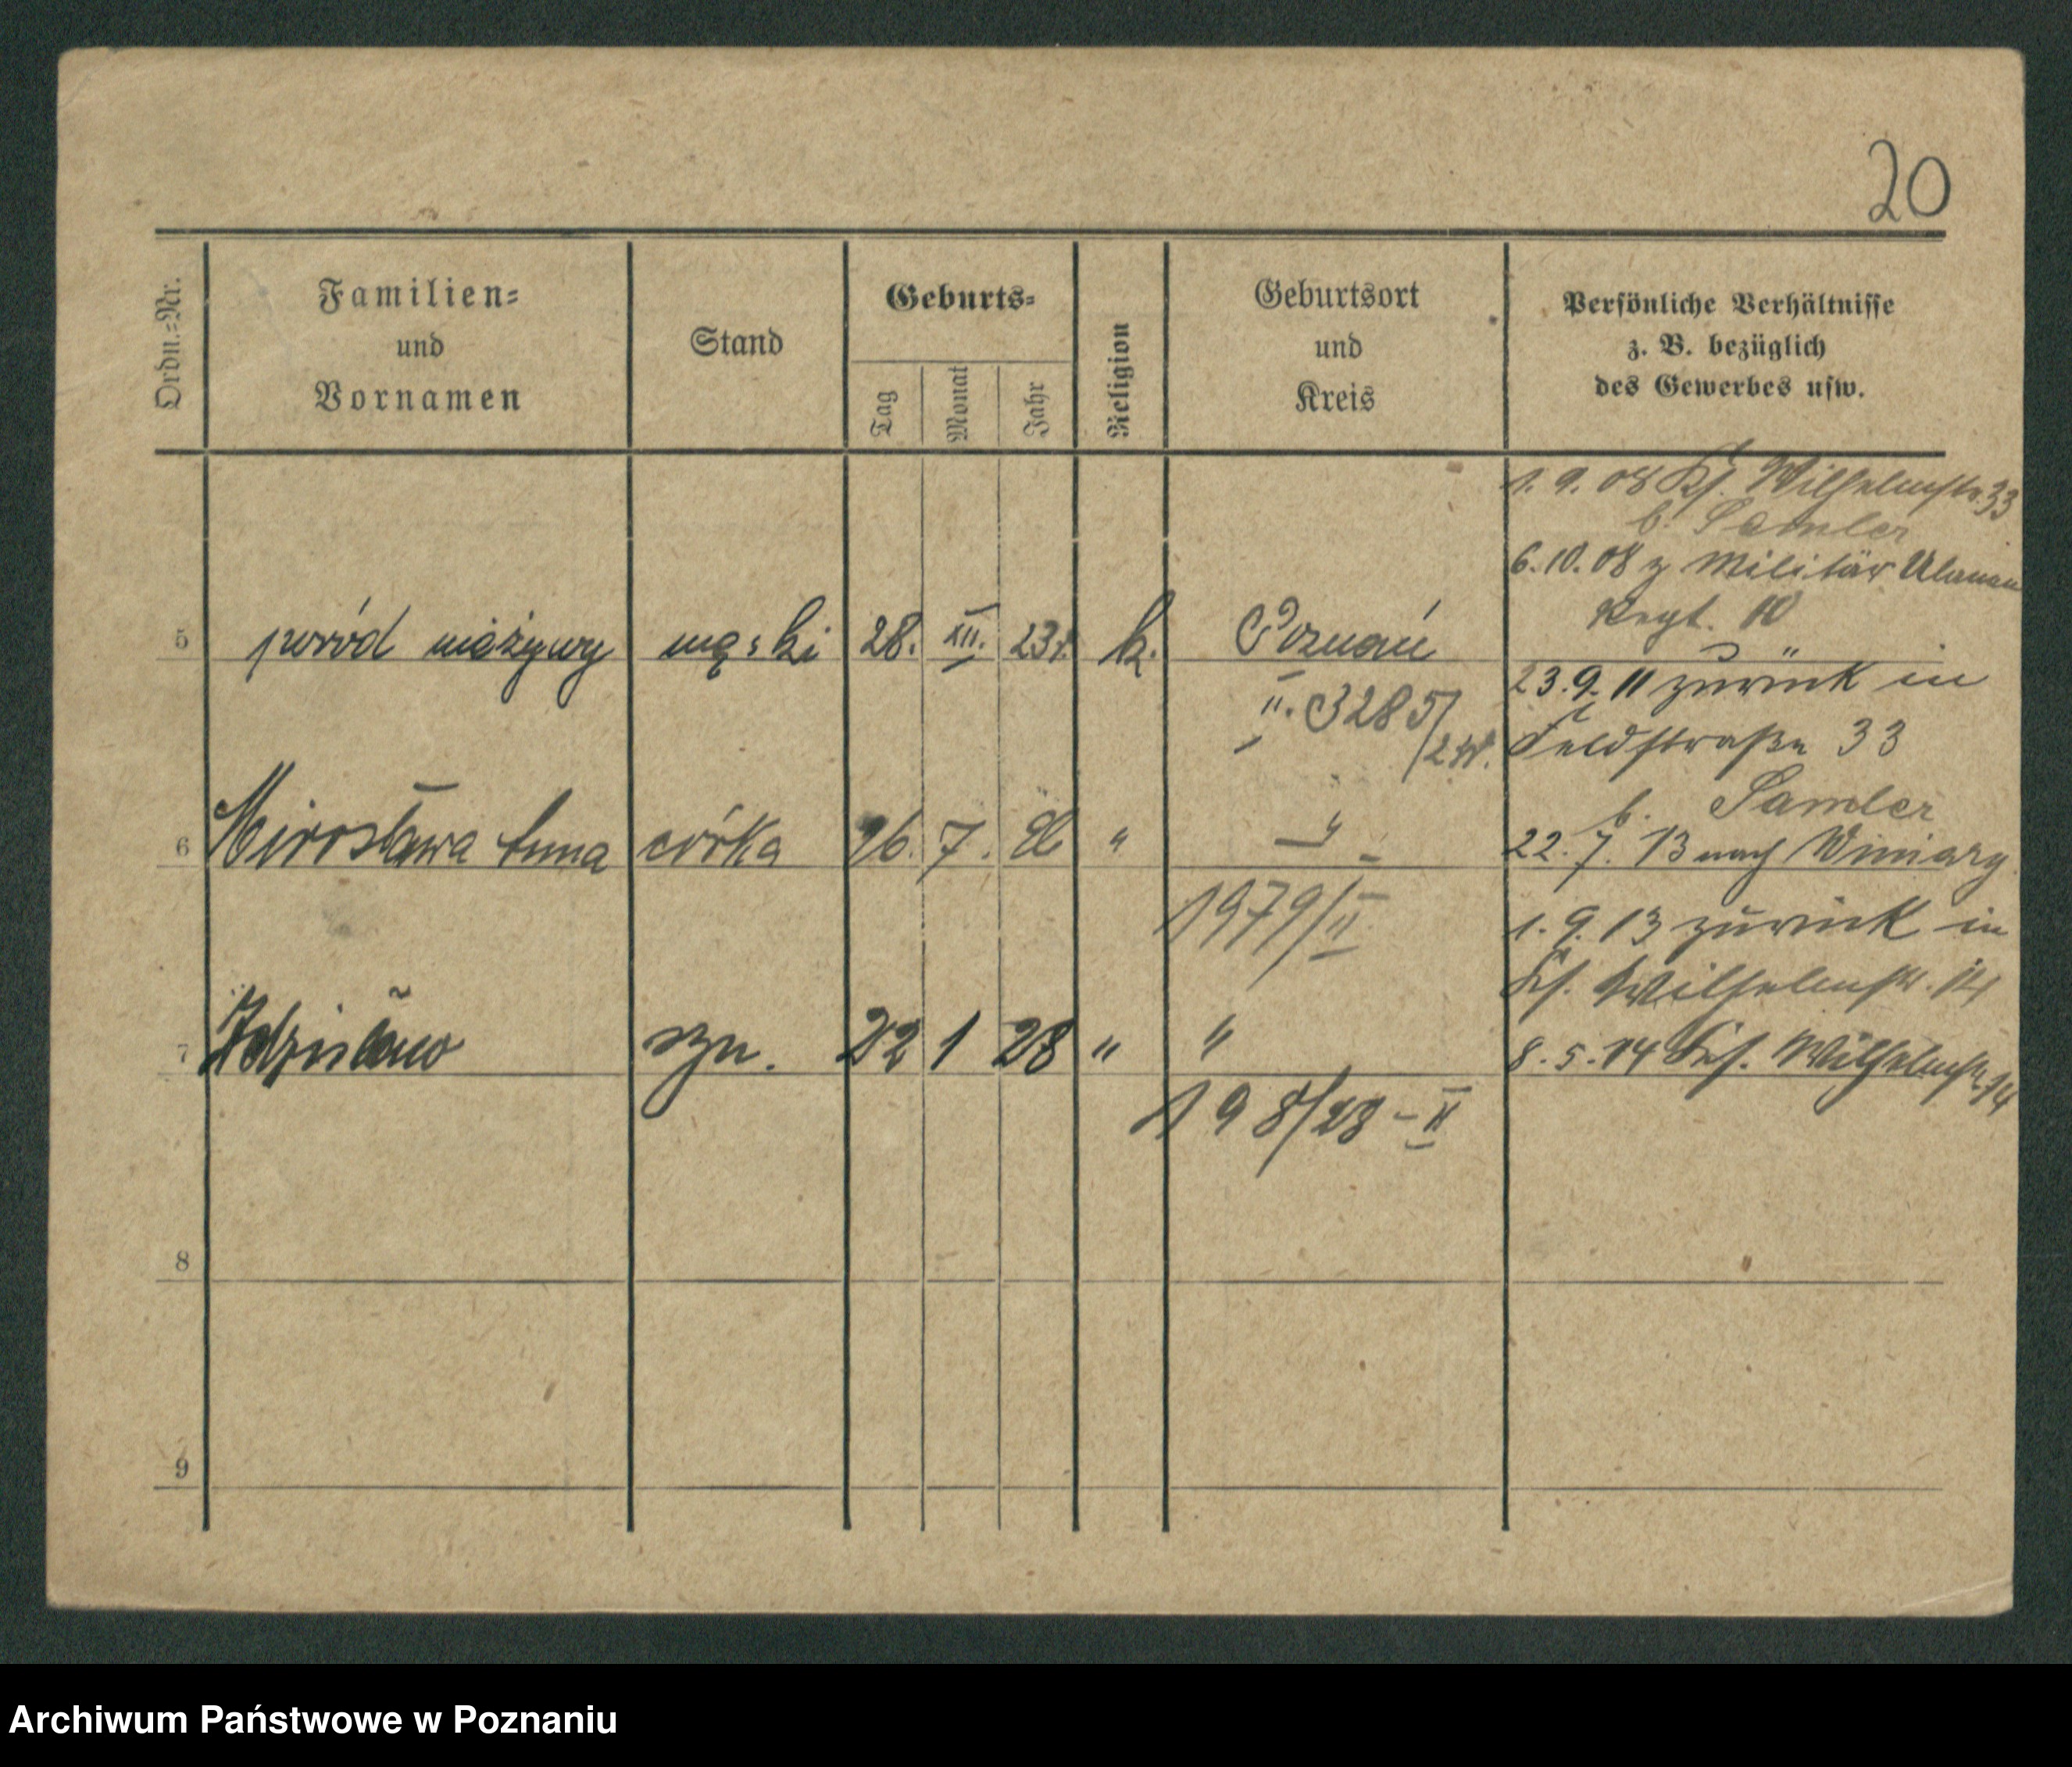 20
Ordn.=Nr.
Familien=
und
Vornamen
Stand
Geburts=
Tag
Monat
Jahr
Religion
Geburtsort
und
Kreis
Persönliche Verhältnisse
z. B. bezüglich
des Gewerbes usw.
1. 9. 08 Ks. Wilhelmstr. 33
b. Samler
6. 10. 08 z Militär Ulanen
Regt. 10
5 poród nieżywy męski 28. XII. 23r. k. Poznań
23. 9. 11 zurück in
II. 3285/
Feldstraße 33
b. Samler
6 Mirosława Anna córka 26. 7. " — " —
22. 7. 13 nach Winiary
1979/II
1. 9. 13 zurück in
Ks. Wilhelmstr. 14
7 Zdzisław syn. 22 1 28 " "
8. 5. 14 Ks. Wilhelmstr. 14
198/28 - II
8
9
Archiwum Państwowe w Poznaniu